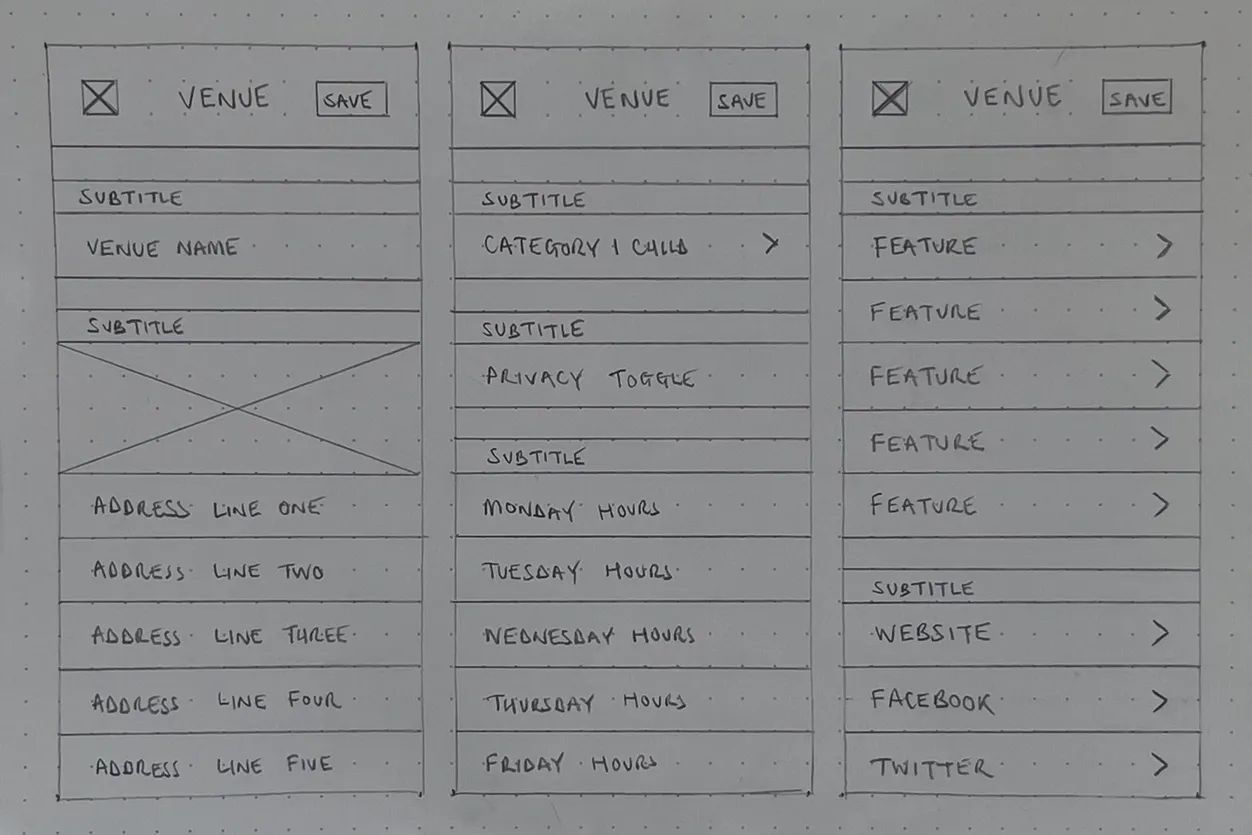 VENUE SAVE
SUBTITLE
VENUE NAME
SUBTITLE
ADDRESS LINE ONE
ADDRESS LINE TWO
ADDRESS LINE THREE
ADDRESS LINE FOUR
ADDRESS LINE FIVE
VENUE SAVE
SUBTITLE
CATEGORY 1 CHILD >
SUBTITLE
PRIVACY TOGGLE
SUBTITLE
MONDAY HOURS
TUESDAY HOURS
WEDNESDAY HOURS
THURSDAY HOURS
FRIDAY HOURS
VENUE SAVE
SUBTITLE
FEATURE >
FEATURE >
FEATURE >
FEATURE >
FEATURE >
SUBTITLE
WEBSITE >
FACEBOOK >
TWITTER >